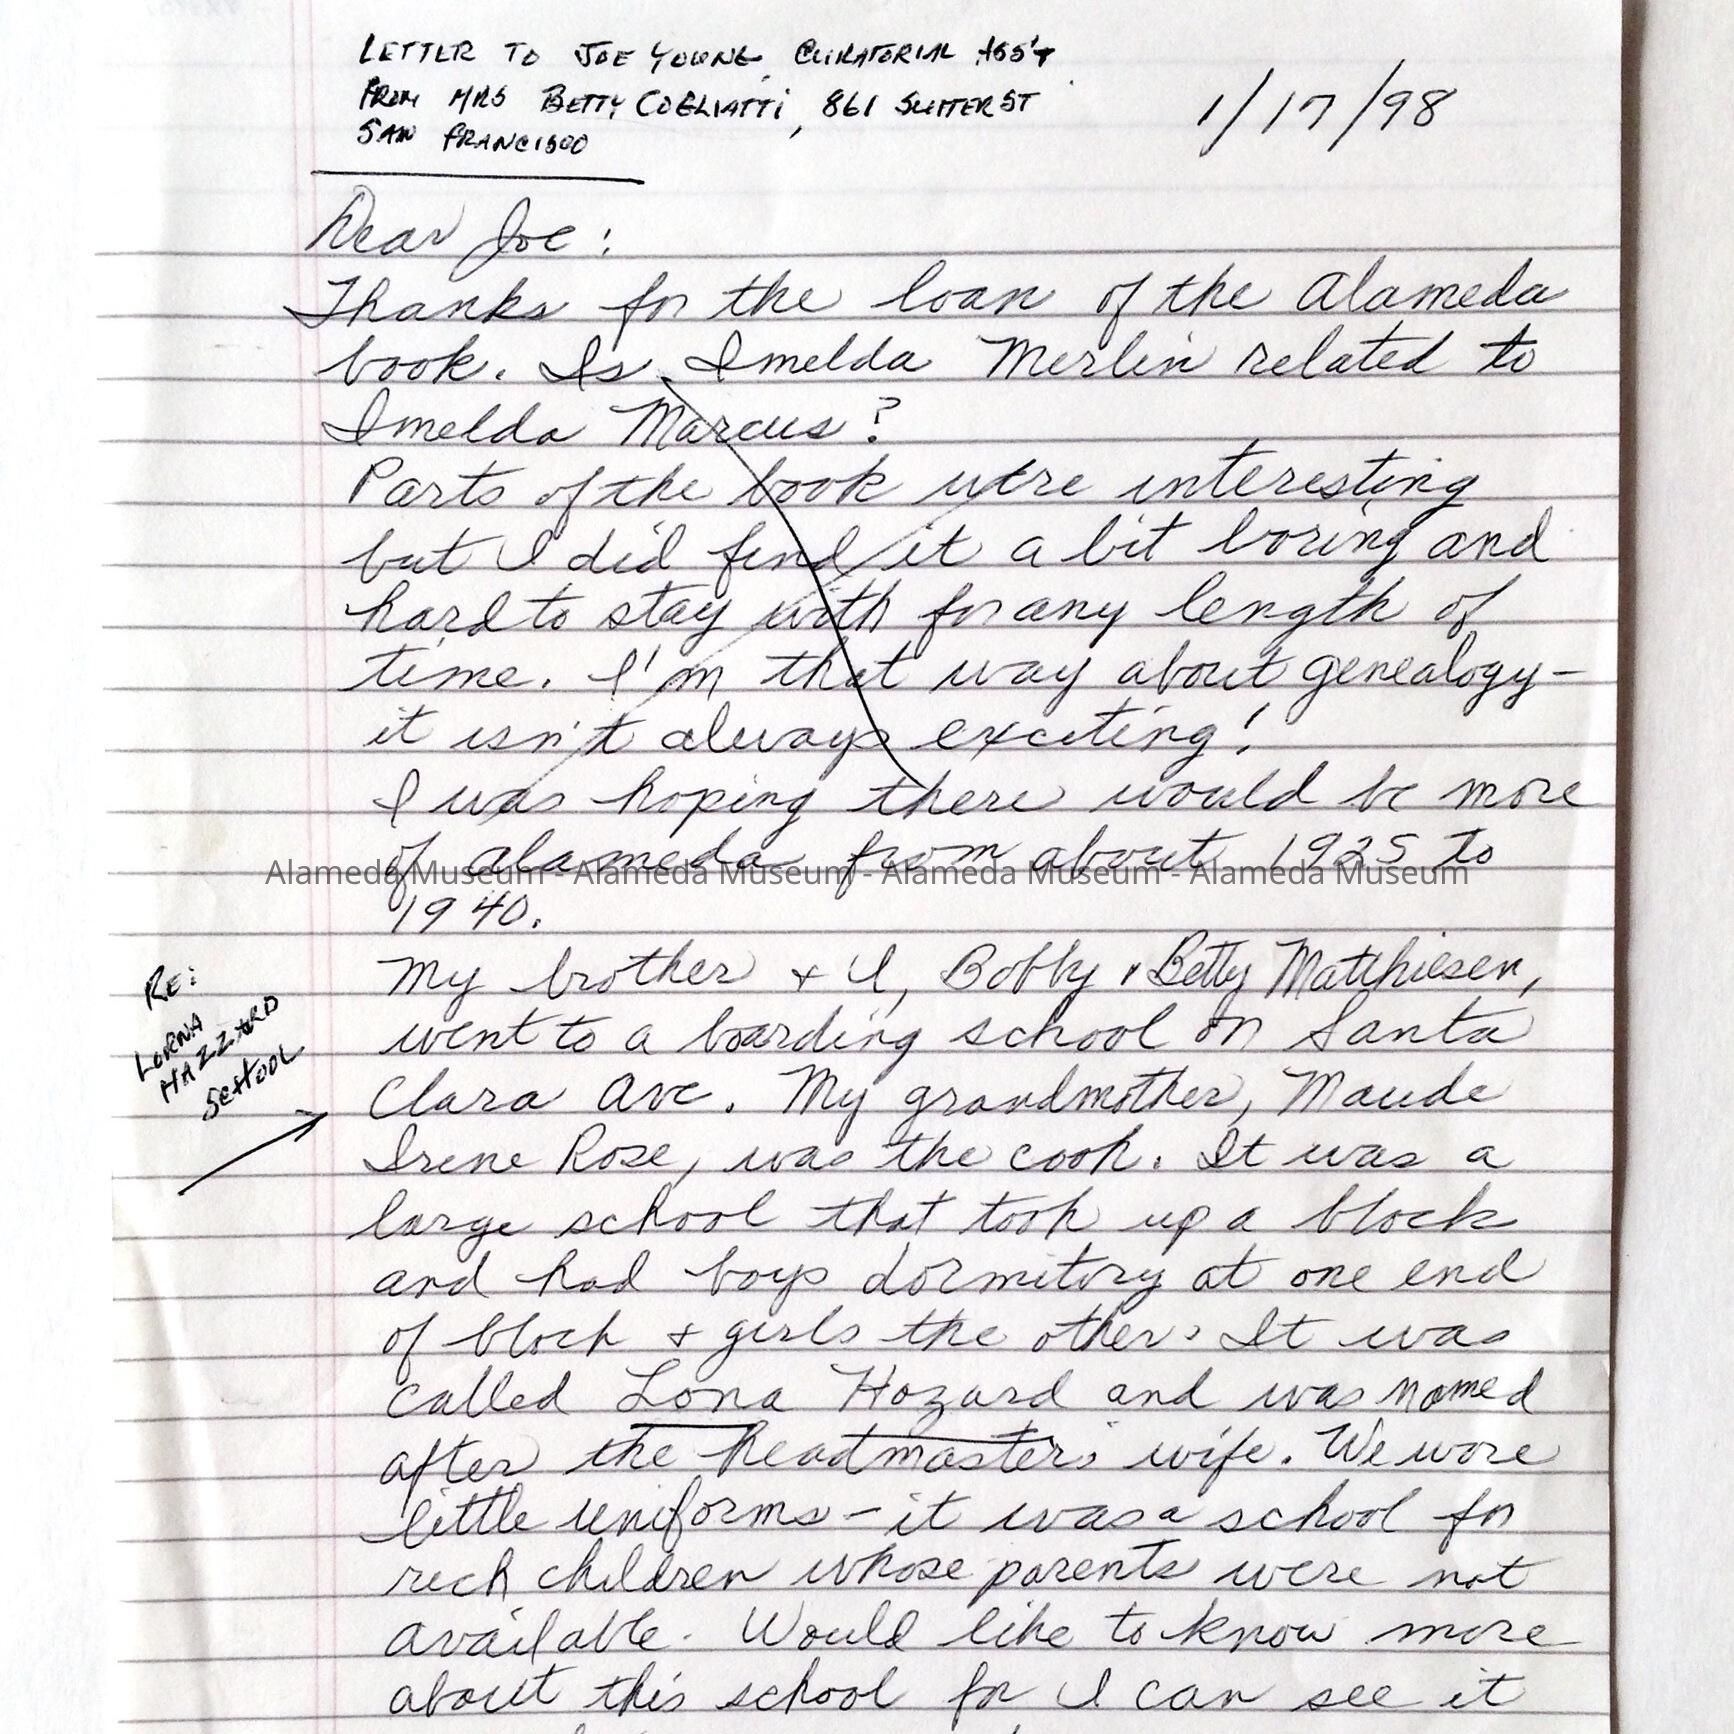 LETTER TO JOE YOUNG, CURATORIAL ASS'T
FROM MRS BETTY COGLIATTI, 861 SUTTER ST
SAN FRANCISCO
1/17/98
Dear Joe:
Thanks for the loan of the Alameda
book. Is Imelda Merlin related to
Imelda Marcus?
Parts of the book were interesting
but I did find it a bit boring and
hard to stay with for any length of
time. I'm that way about genealogy-
it isn't always exciting!
I was hoping there would be more
of Alameda from about 1925 to
Alameda Museum - Alameda Museum - Alameda Museum - Alameda Museum
1940.
My brother + I, Bobby & Betty Matthiesen,
went to a boarding school on Santa
Clara Ave. My grandmother, Maude
Irene Rose, was the cook. It was a
large school that took up a block
and had boys dormitory at one end
of block + girls the other. It was
called Lona Hozard and was named
after the headmaster's wife. We wore
little uniforms - it was a school for
rich children whose parents were not
available. Would like to know more
about this school for I can see it
RE:
LORNA
HAZZARD
SCHOOL